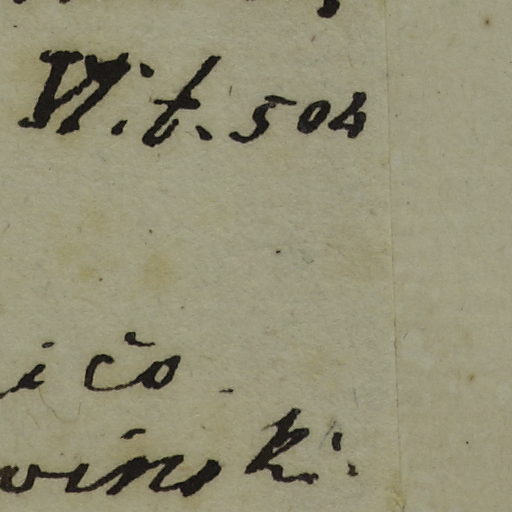 VI. t. 504
ičo
winski.